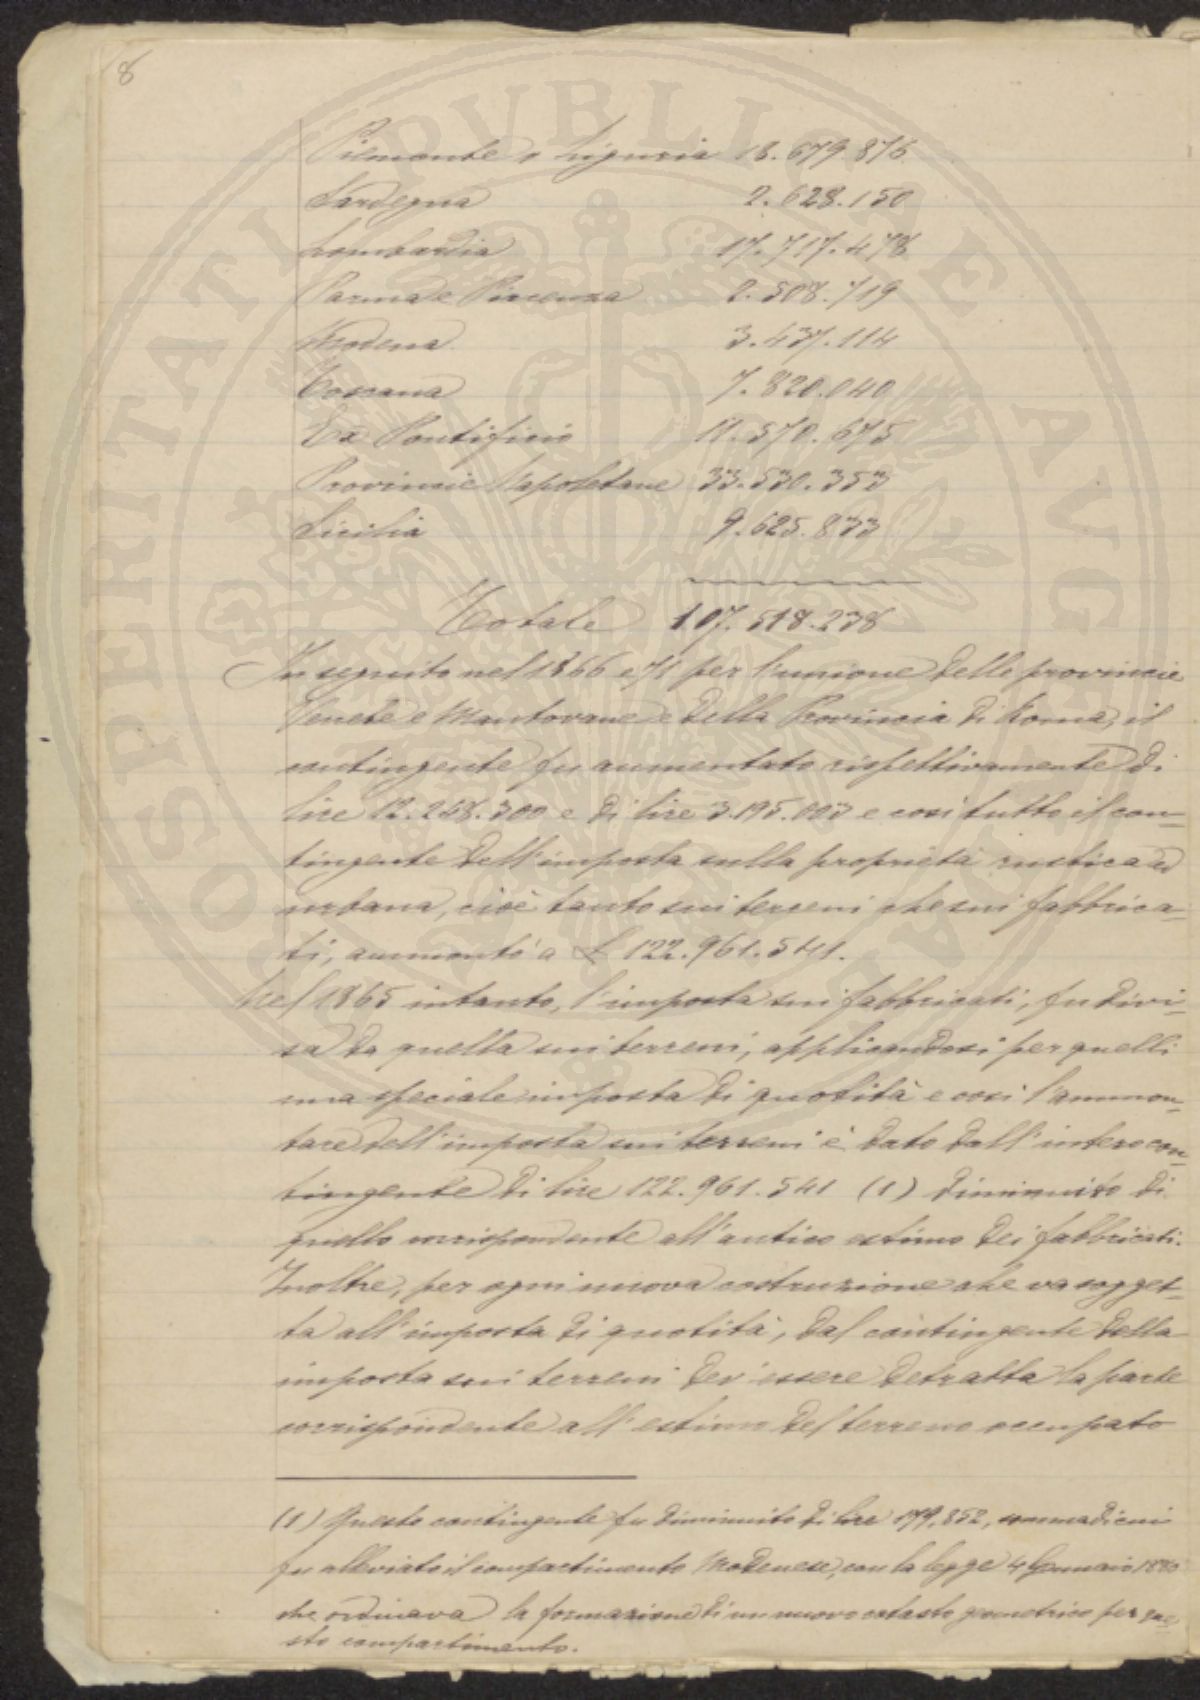 8
Piemonte e Liguria 18.679.876
Sardegna 2.628.150
Lombardia 17.717.478
Parma e Piacenza 2.508.719
Modena 3.437.114
Toscana 7.820.040
Ex Pontificio 11.570.675
Provincie Napoletane 33.530.353
Sicilia 9.625.833
Totale 107.518.238
In seguito nel 1866 e 71 per l'unione delle provincie
Venete e Mantovane e della Provincia di Roma, il
contingente fu aumentato rispettivamente di
lire 12.248.300 e di lire 3.195.003 e così tutto il con-
tingente dell'imposta sulla proprietà rustica ed
urbana, cioè tanto sui terreni che sui fabbrica-
ti, aumentò a £ 122.961.541.
Nel 1865 intanto, l'imposta sui fabbricati, fu divi-
sa da quella sui terreni, applicandosi per quelli
una speciale imposta di quotità e così l'ammon-
tare dell'imposta sui terreni è dato dall'intero con-
tingente di lire 122.961.541 (1) diminuito di
quello corrispondente all'antico estimo dei fabbricati.
Inoltre, per ogni nuova costruzione che va sogget-
ta all'imposta di quotità, dal contingente della
imposta sui terreni dev'essere detratta la parte
corrispondente all'estimo del terreno occupato
(1) Questo contingente fu diminuito di lire 179,852, somma di cui
fu alleviato il compartimento Modenese, con la legge 4 Gennaio 1880
che ordinava la formazione di un nuovo catasto geometrico per que-
sto compartimento.
SALUTATI PUBLICAE AUGE
PROSPERITATI